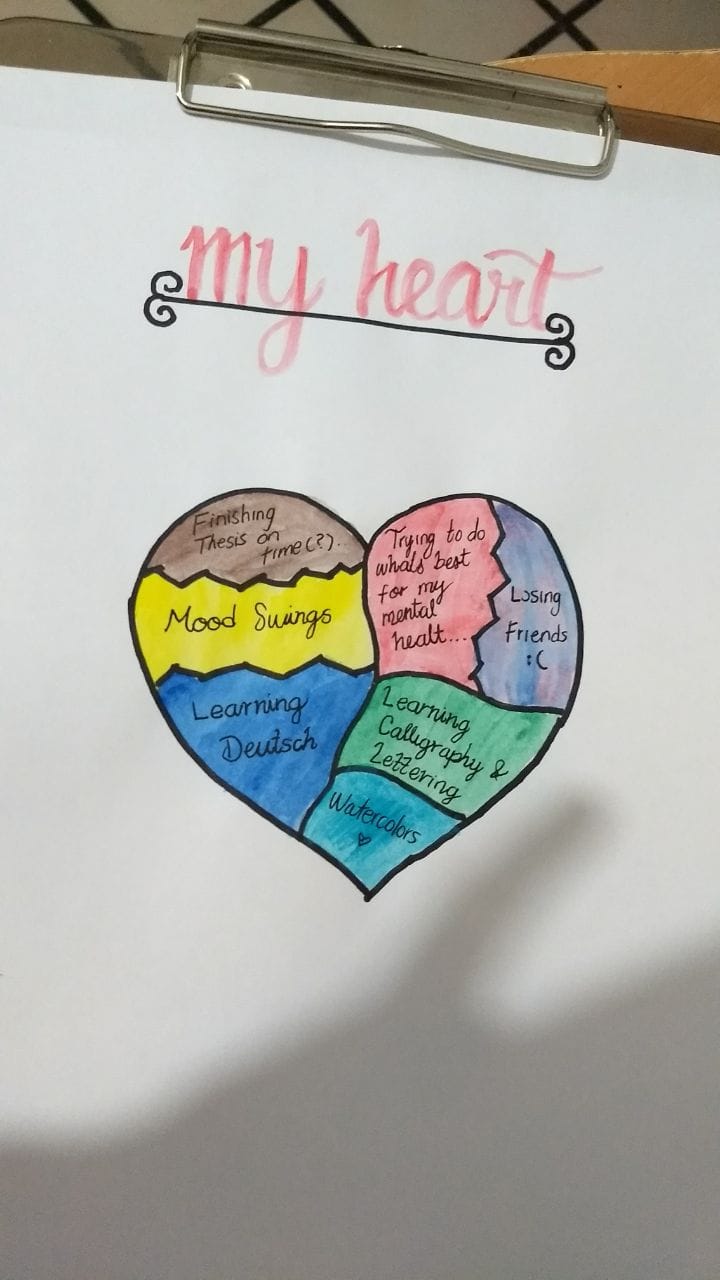 my heart
Finishing
Thesis on
time(?).
Mood Swings
Learning
Deutsch
Trying to do
whats best
for my
mental
healt...
Losing
Friends
:(
Learning
Calligraphy &
Lettering
Watercolors
♡